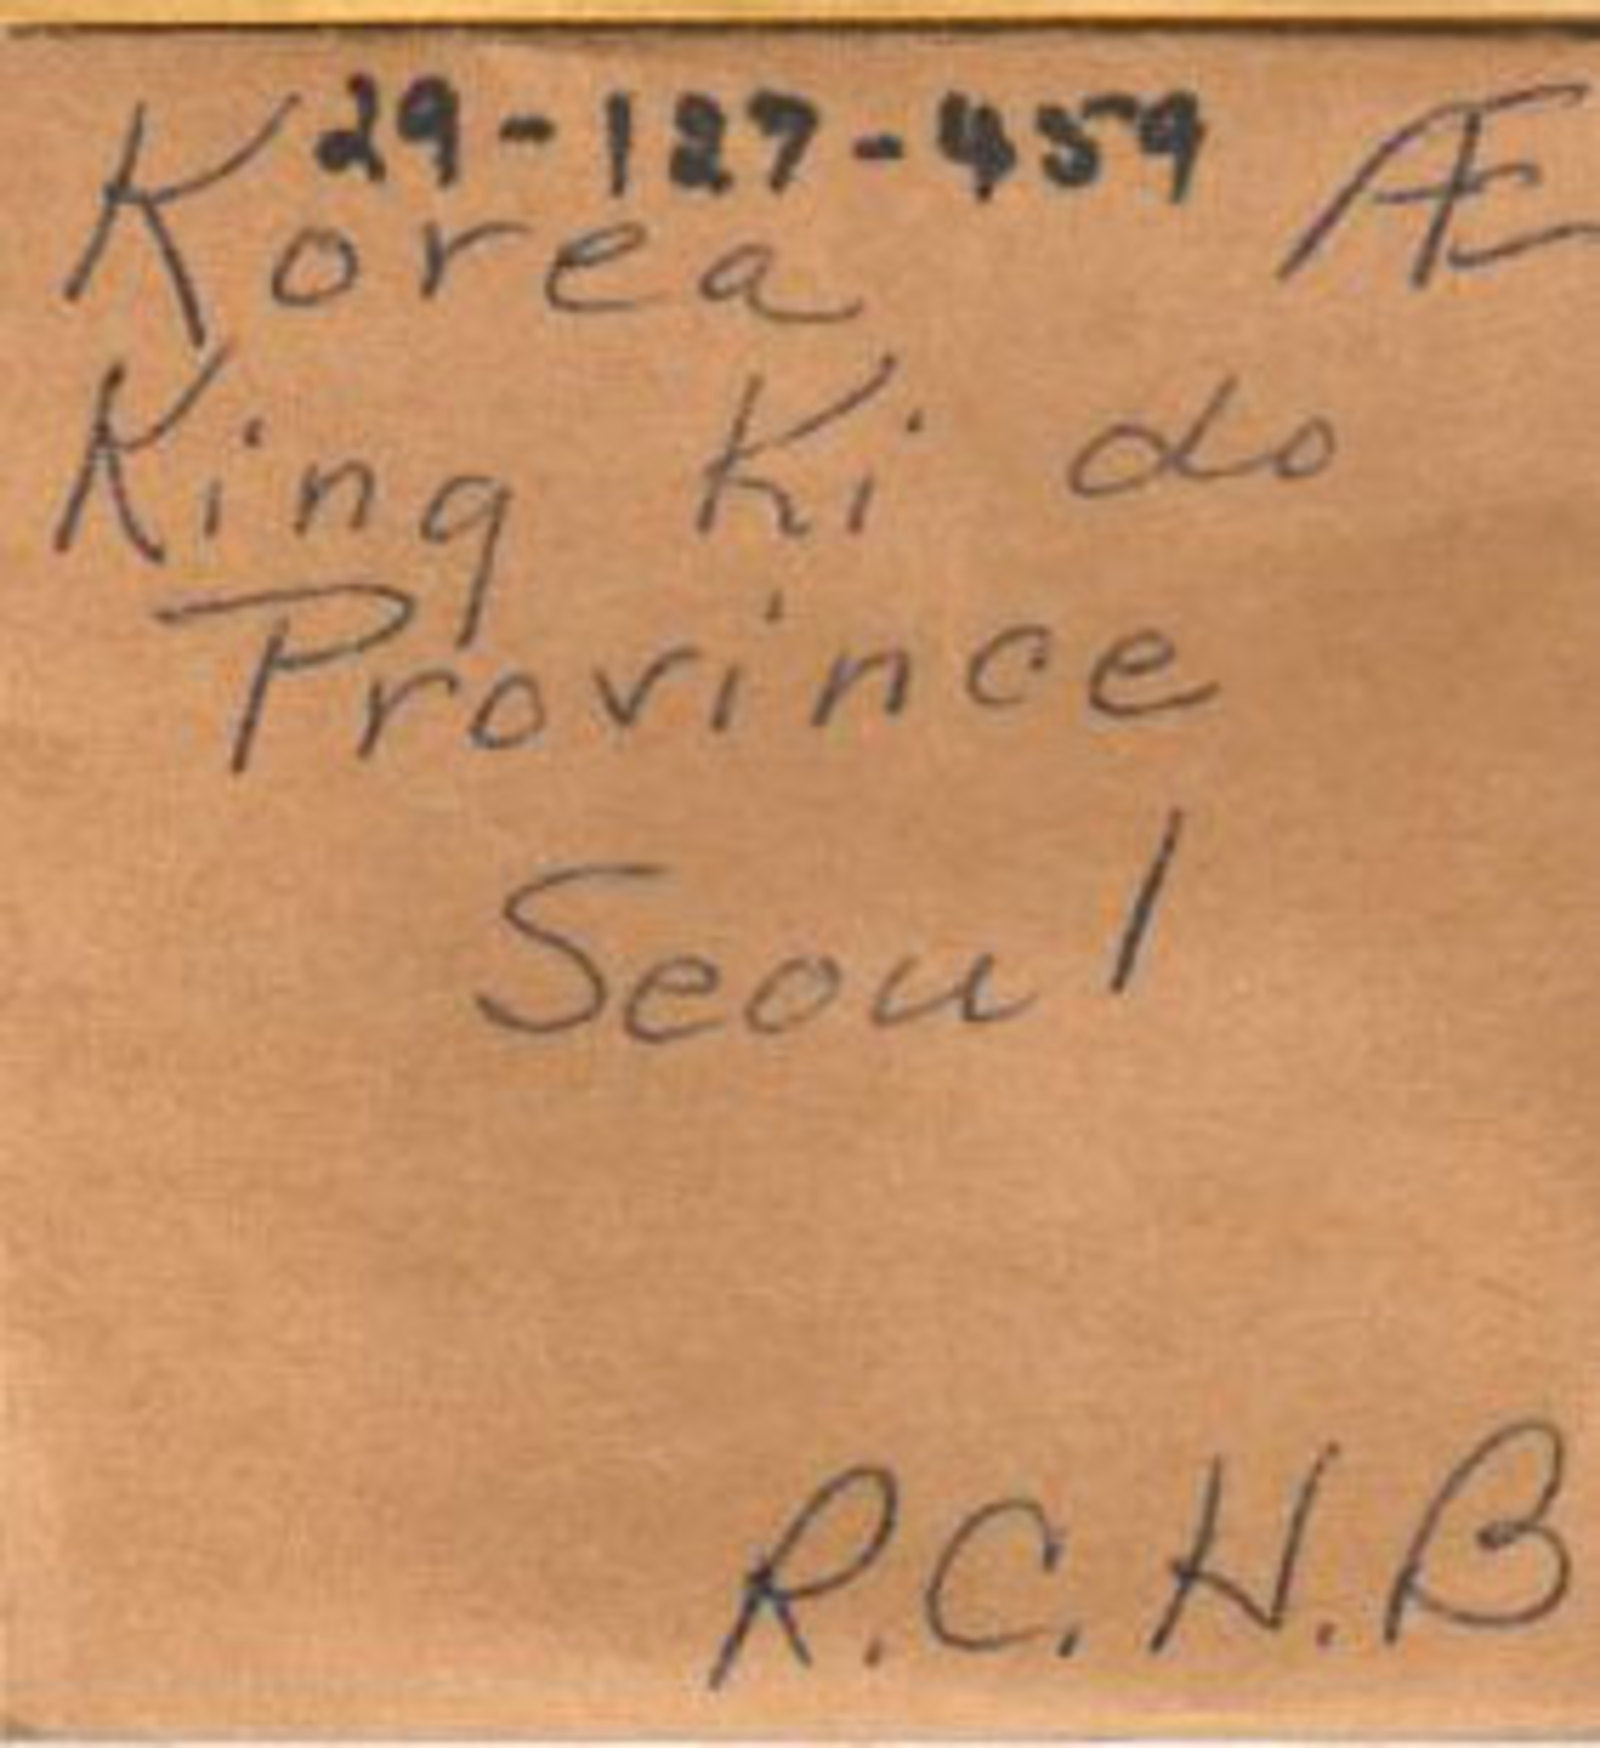 29-127-459
Korea Æ
King Ki do
Province
Seoul
R.C.H.B